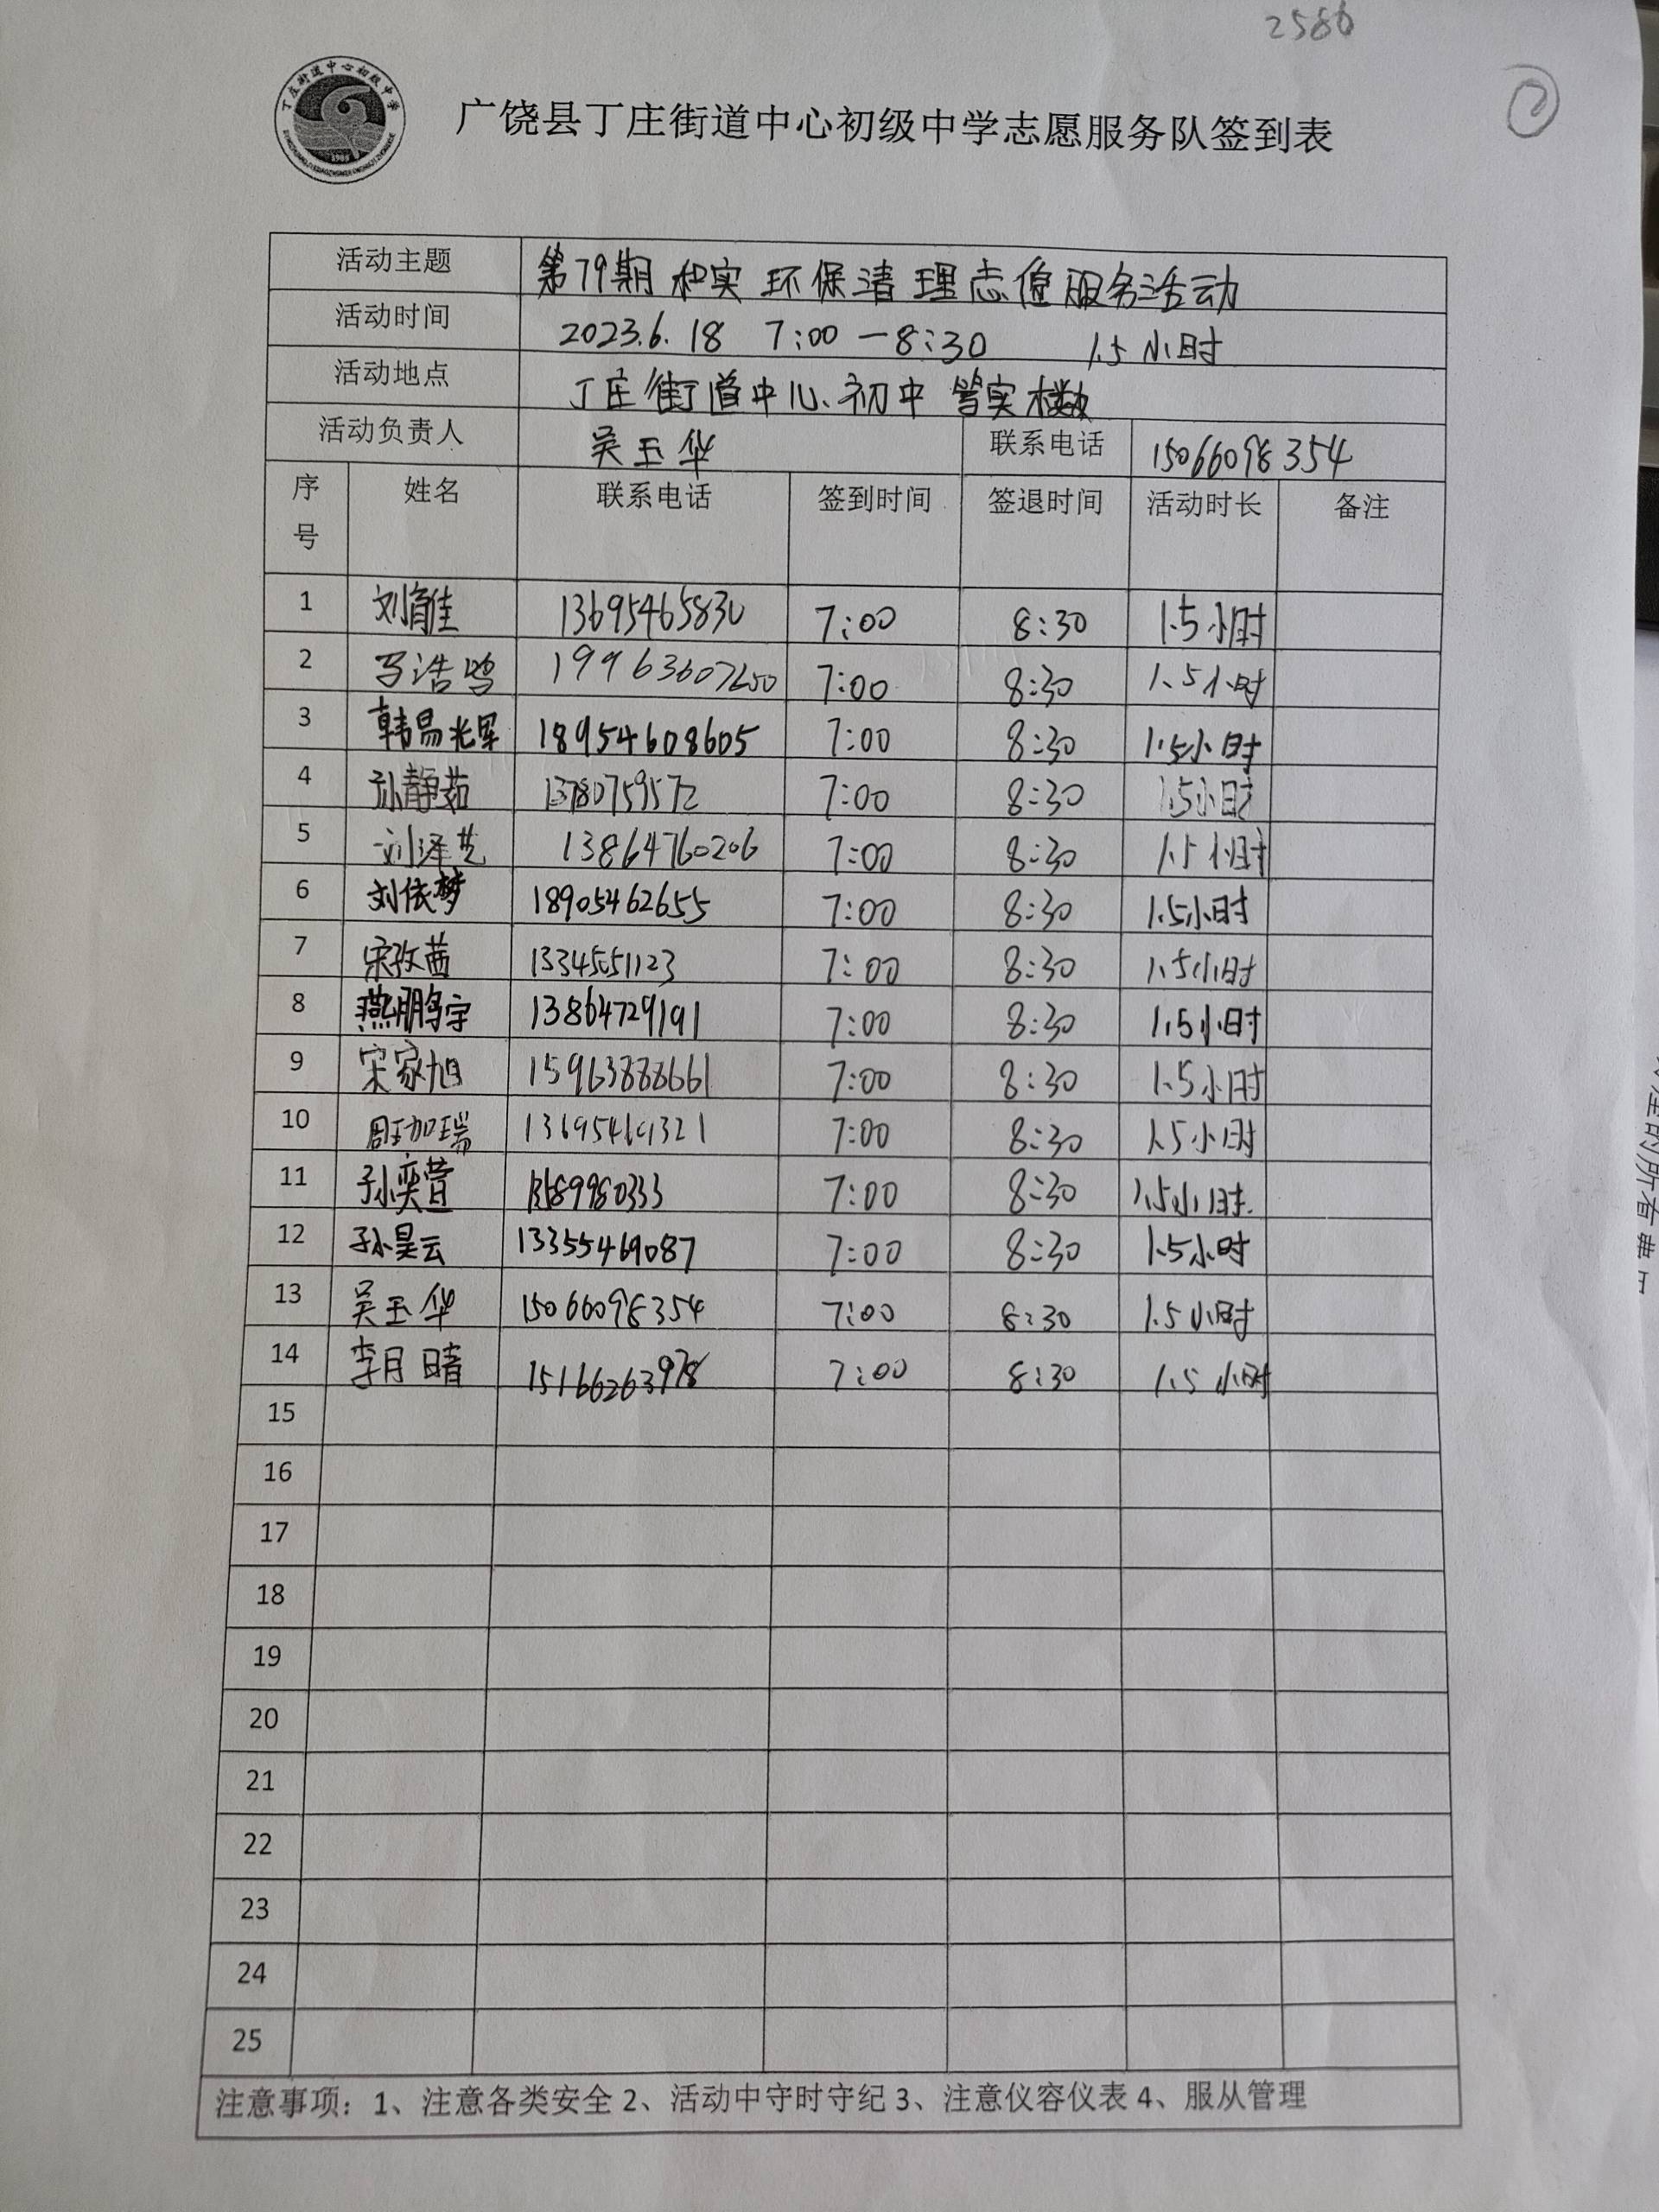 2586
②
丁庄街道中心初级中学
广饶县丁庄街道中心初级中学志愿服务队签到表
活动主题 第79期 和实 环保清理志愿服务活动
活动时间 2023.6.18 7:00—8:30 1.5小时
活动地点 丁庄街道中心初中 笃实楼
活动负责人 吴玉华 联系电话 15066098354
序号 姓名 联系电话 签到时间 签退时间 活动时长 备注
1 刘育佳 13695465830 7:00 8:30 1.5小时
2 马浩 19963607200 7:00 8:30 1.5小时
3 韩易 18954608605 7:00 8:30 1.5小时
4 孙静茹 13780759572 7:00 8:30 1.5小时
5 刘泽艺 13864760206 7:00 8:30 1.5小时
6 刘依梦 18905462655 7:00 8:30 1.5小时
7 宋孜茜 13345051123 7:00 8:30 1.5小时
8 燕鹏宇 13864729191 7:00 8:30 1.5小时
9 宋家旭 15963888661 7:00 8:30 1.5小时
10 周珈瑞 7:00 8:30 1.5小时
11 孙奕萱 13589980333 7:00 8:30 1.5小时.
12 孙昊云 13355469087 7:00 8:30 1.5小时
13 吴玉华 15066098354 7:00 8:30 1.5小时
14 李月晴 15166263978 7:00 8:30 1.5小时
15
16
17
18
19
20
21
22
23
24
25
注意事项：1、注意各类安全 2、活动中守时守纪 3、注意仪容仪表 4、服从管理